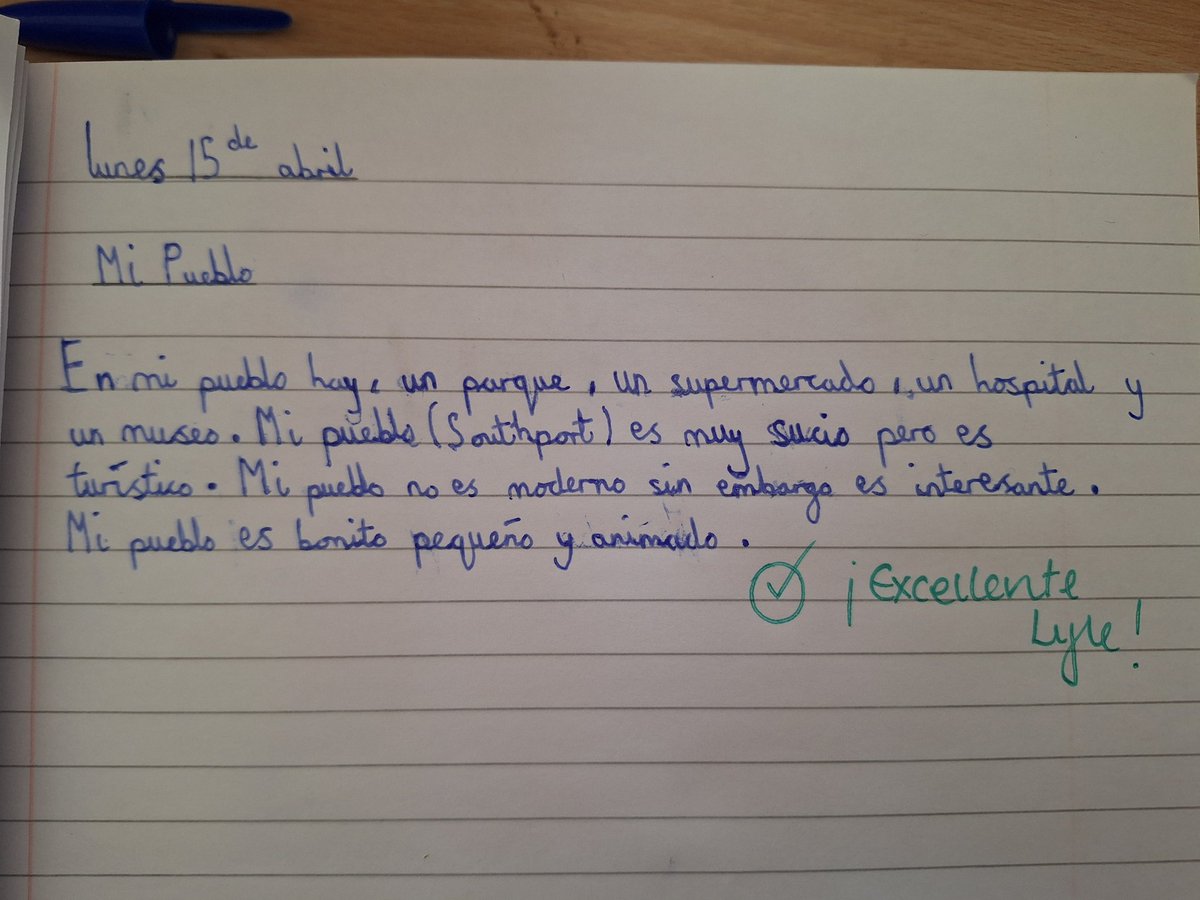 lunes 15 de abril
Mi Pueblo
En mi pueblo hay, un parque, un supermercado, un hospital y
un museo. Mi pueblo (Southport) es muy sucio pero es
turístico. Mi pueblo no es moderno sin embargo es interesante.
Mi pueblo es bonito pequeño y animado.
¡Excellente
Lyle!